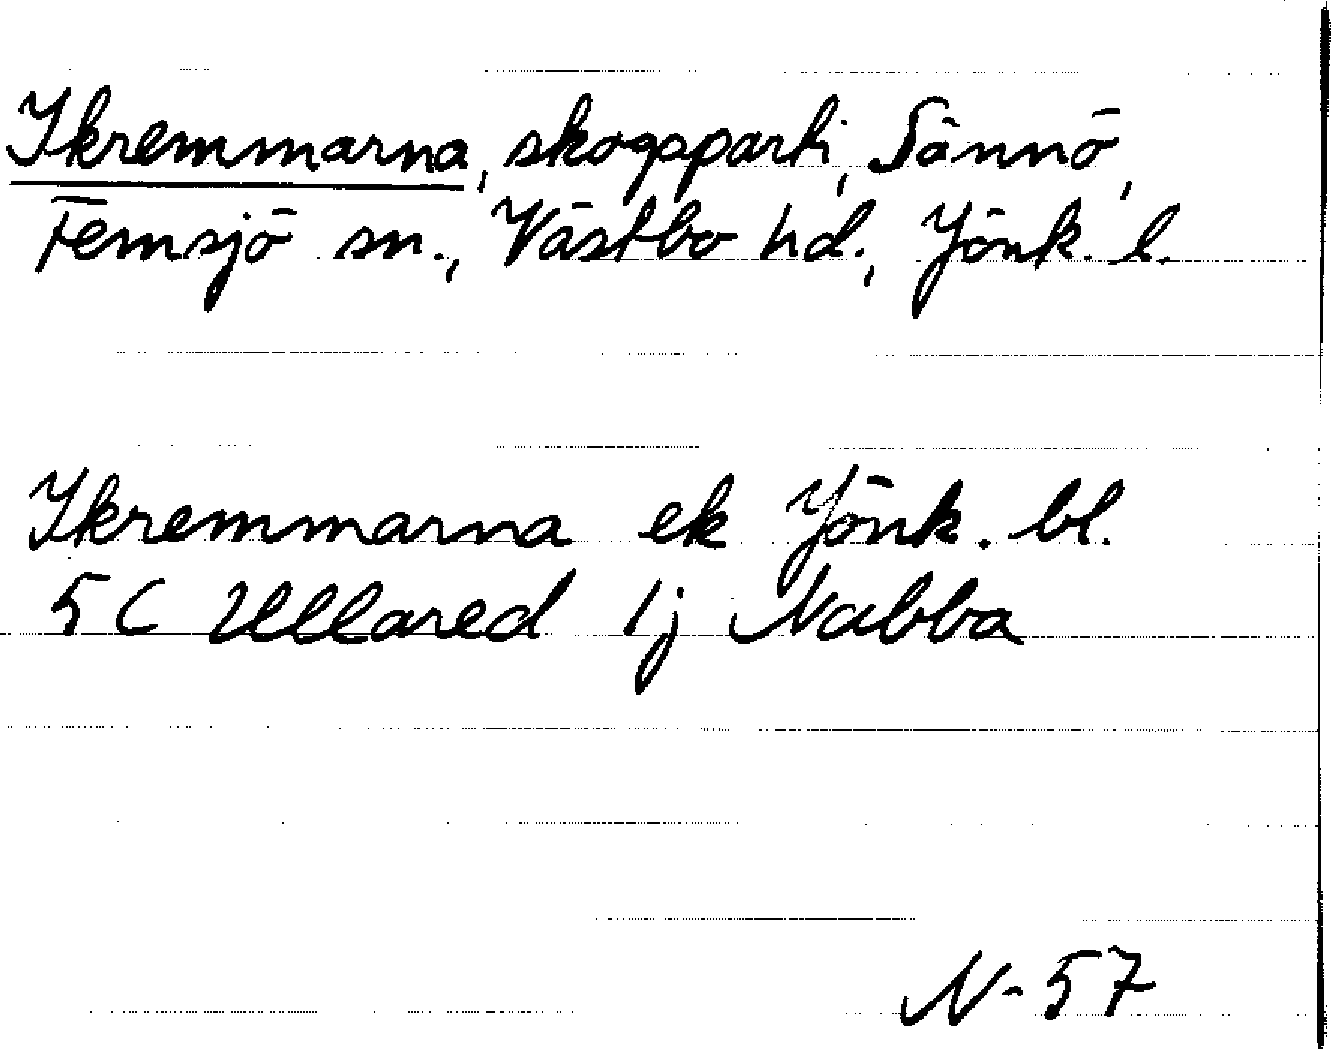 Ikremmarna, skogsparti, Sännö,
Femsjö sn., Västbo hd., Jönk. l.
Ikremmarna ek Jönk. bl.
5C Ullared 1j Nabba
N-57